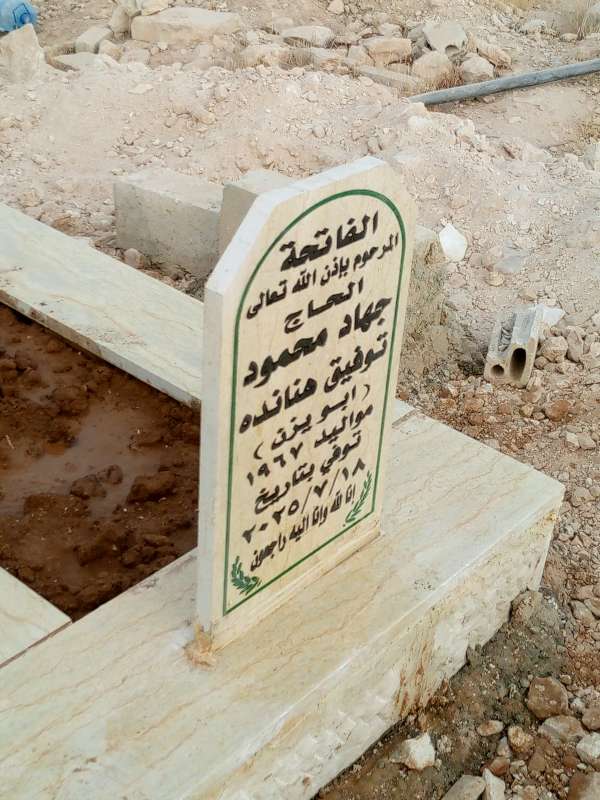 الفاتحة
المرحوم بإذن الله تعالى
الحاج
جهاد محمود
توفيق هنانده
( ابو يزن )
مواليد ١٩٦٧
توفي بتاريخ
٢٠٢٥/٧/١٨
انا لله وانا اليه راجعون